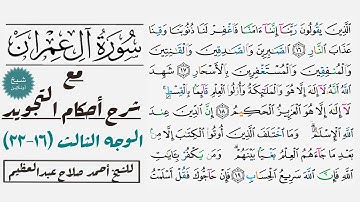 ٱلَّذِينَ يَقُولُونَ رَبَّنَآ إِنَّنَآ ءَامَنَّا فَٱغْفِرْ لَنَا ذُنُوبَنَا وَقِنَا
عَذَابَ ٱلنَّارِ ١٦ ٱلصَّٰبِرِينَ وَٱلصَّٰدِقِينَ وَٱلْقَٰنِتِينَ
وَٱلْمُنفِقِينَ وَٱلْمُسْتَغْفِرِينَ بِٱلْأَسْحَارِ ١٧ شَهِدَ
ٱللَّهُ أَنَّهُۥ لَآ إِلَٰهَ إِلَّا هُوَ وَٱلْمَلَٰٓئِكَةُ وَأُو۟لُوا۟ ٱلْعِلْمِ قَآئِمًۢا بِٱلْقِسْطِۚ
لَآ إِلَٰهَ إِلَّا هُوَ ٱلْعَزِيزُ ٱلْحَكِيمُ ١٨ إِنَّ ٱلدِّينَ عِندَ
ٱللَّهِ ٱلْإِسْلَٰمُۗ وَمَا ٱخْتَلَفَ ٱلَّذِينَ أُوتُوا۟ ٱلْكِتَٰبَ إِلَّا مِنۢ
بَعْدِ مَا جَآءَهُمُ ٱلْعِلْمُ بَغْيًۢا بَيْنَهُمْۗ وَمَن يَكْفُرْ بِـَٔايَٰتِ
ٱللَّهِ فَإِنَّ ٱللَّهَ سَرِيعُ ٱلْحِسَابِ ١٩ فَإِنْ حَآجُّوكَ فَقُلْ أَسْلَمْتُ
سُورَةُ آلِ عِمْرَان
مع
شرح أحكام التجويد
الوجه الثالث (١٦-٢٢)
للشيخ أحمد صلاح عبدالعظيم